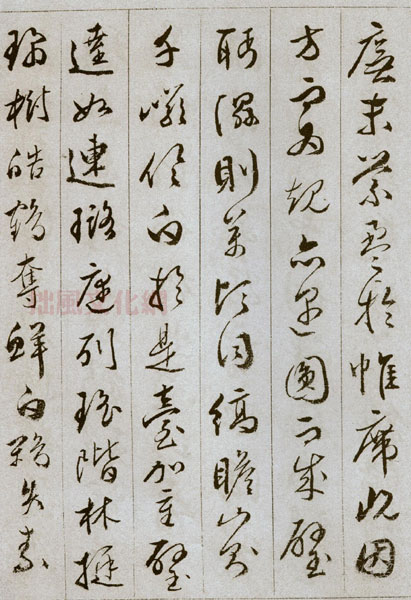 廡末縈盈於帷席既因
方而為珪亦遇圓而成璧
眄隰則萬頃同縞瞻山則
千巖俱白於是臺如重璧
逵似連璐庭列瑤階林挺
瓊樹皓鶴奪鮮白鷴失素
拙風文化網